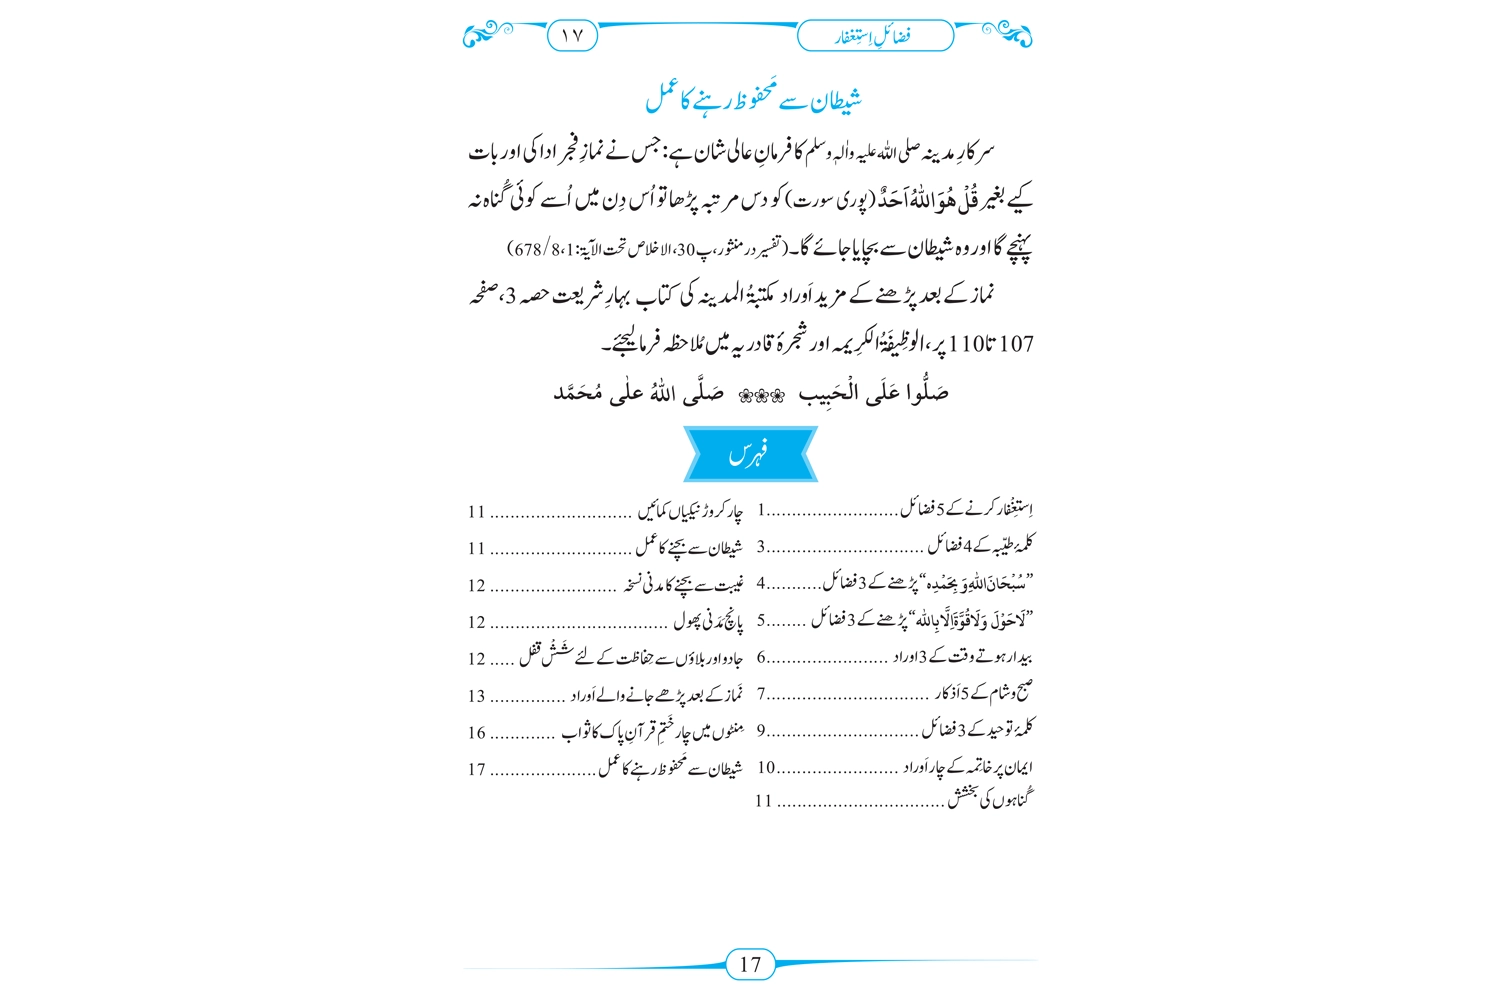 فضائلِ اِستِغفار
۱۷
شیطان سے مَحفوظ رہنے کا عمل
سرکارِ مدینہ صلی اللہ علیہ واٰلہٖ وسلم کا فرمانِ عالی شان ہے: جس نے نمازِ فجر ادا کی اور بات
کیے بغیر قُلْ هُوَ اللّٰهُ اَحَدٌ (پوری سورت) کو دس مرتبہ پڑھا تو اُس دِن میں اُسے کوئی گُناہ نہ
پہنچے گا اور وہ شیطان سے بچایا جائے گا۔ (تفسیر در منثور، پ30، الاخلاص تحت الآیۃ:1، 8/678)
نماز کے بعد پڑھنے کے مزید اَوراد مکتبۃُ المدینہ کی کتاب بہارِ شریعت حصہ 3، صفحہ
107 تا 110 پر، الوظِیفَۃُ الکرِیمہ اور شجرۂ قادریہ میں مُلاحظہ فرما لیجئے۔
صَلُّوا عَلَی الْحَبِیب ❀❀❀ صَلَّی اللہُ علٰی مُحَمَّد
فہرس
اِستِغْفار کرنے کے 5 فضائل..........................1
کلمۂ طیّبہ کے 4 فضائل ...............................3
”سُبْحَانَ اللّٰهِ وَ بِحَمْدِہ“ پڑھنے کے 3 فضائل...........4
”لَاحَوْلَ وَلَا قُوَّةَ اِلَّا بِاللّٰه“ پڑھنے کے 3 فضائل ........5
بیدار ہوتے وقت کے 3 اوراد ........................6
صبح و شام کے 5 اَذکار ................................7
کلمۂ توحید کے 3 فضائل ..............................9
ایمان پر خاتِمہ کے چار اَوراد ........................10
گُناہوں کی بخشش ................................. 11
چار کروڑ نیکیاں کمائیں ............................ 11
شیطان سے بچنے کا عمل ............................ 11
غیبت سے بچنے کا مدنی نسخہ ......................... 12
پانچ مَدَنی پھول ................................... 12
جادو اور بلاؤں سے حِفاظت کے لئے شَشْ قفل ..... 12
نَماز کے بعد پڑھے جانے والے اَوراد ............... 13
مِنٹوں میں چار خَتمِ قرآنِ پاک کا ثواب ............. 16
شیطان سے مَحفوظ رہنے کا عمل ..................... 17
17